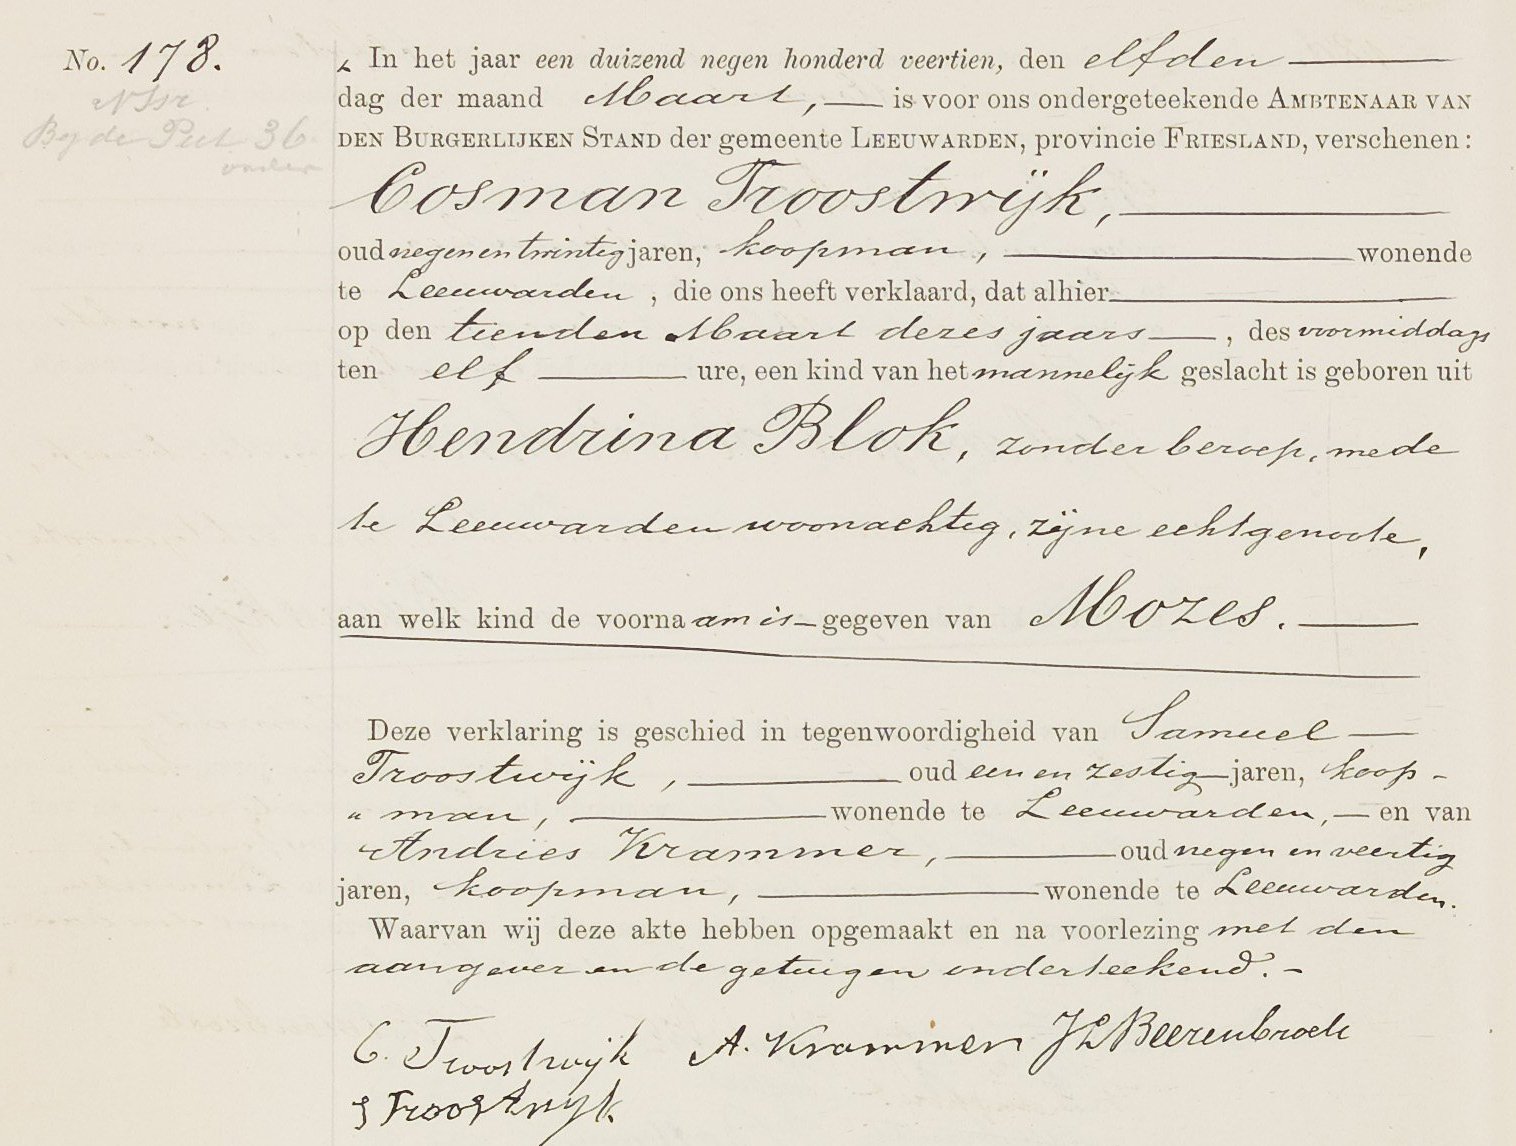 No. 178.
N Isr.
Bij de Put 36
onder
In het jaar een duizend negen honderd veertien, den elfden
dag der maand Maart, is voor ons ondergeteekende AMBTENAAR VAN
DEN BURGERLIJKEN STAND der gemeente LEEUWARDEN, provincie FRIESLAND, verschenen:
Cosman Troostwijk,
oud negen en twintig jaren, koopman, wonende
te Leeuwarden, die ons heeft verklaard, dat alhier
op den tienden Maart dezes jaars, des voormiddags
ten elf ure, een kind van het mannelijk geslacht is geboren uit
Hendrina Blok, zonder beroep, mede
te Leeuwarden woonachtig, zijne echtgenoote,
aan welk kind de voornaam is gegeven van Mozes.
Deze verklaring is geschied in tegenwoordigheid van Samuel
Troostwijk, oud een en zestig jaren, koop-
"man, wonende te Leeuwarden, en van
Andries Krammer, oud negen en veertig
jaren, koopman, wonende te Leeuwarden.
Waarvan wij deze akte hebben opgemaakt en na voorlezing met den
aangever en de getuigen onderteekend.
C. Troostwijk A. Krammer JL Beerenbroek
S Troostwyk